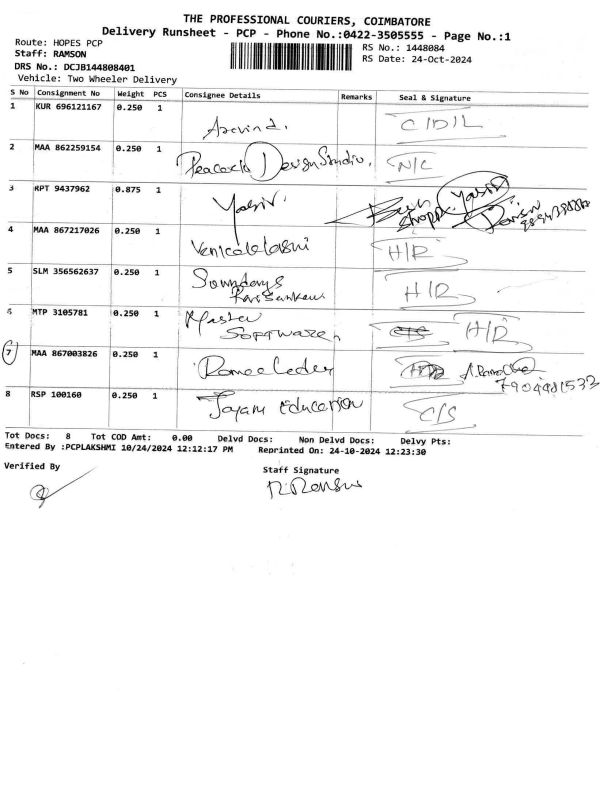 THE PROFESSIONAL COURIERS, COIMBATORE
Delivery Runsheet - PCP - Phone No.:0422-3505555 - Page No.:1
Route: HOPES PCP
RS No.: 1448084
Staff: RAMSON
RS Date: 24-Oct-2024
DRS No.: DCJB144808401
Vehicle: Two Wheeler Delivery
S No Consignment No Weight PCS Consignee Details Remarks Seal & Signature
1 KUR 696121167 0.250 1
Aravind. C/D/L
2 MAA 862259154 0.250 1
Peacock Design Studio. N/C
3 RPT 9437962 0.875 1
Yasir.
4 MAA 867217026 0.250 1
H/R
5 SLM 356562637 0.250 1
H/R
6 MTP 3105781 0.250 1
Master
Software H/R
7 MAA 867003826 0.250 1
7904981533
8 RSP 100160 0.250 1
Jayam Education C/S
Tot Docs: 8 Tot COD Amt: 0.00 Delvd Docs: Non Delvd Docs: Delvy Pts:
Entered By :PCPLAKSHMI 10/24/2024 12:12:17 PM Reprinted On: 24-10-2024 12:23:30
Verified By
Staff Signature